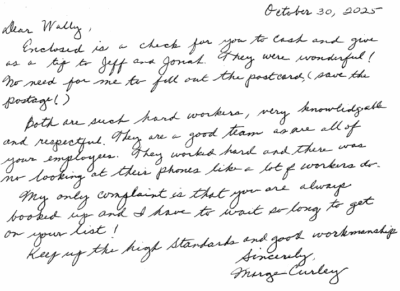 October 30, 2025
Dear Wally,
Enclosed is a check for you to cash and give
as a tip to Jeff and Jonah. They were wonderful!
No need for me to fill out the postcard, (save the
postage!)
Both are such hard workers, very knowledgable
and respectful. They are a good team as are all of
your employees. They worked hard and there was
no looking at their phones like a lot of workers do.
My only complaint is that you are always
booked up and I have to wait so long to get
on your list!
Keep up the high standards and good workmanship
Sincerely,
Marge Curley